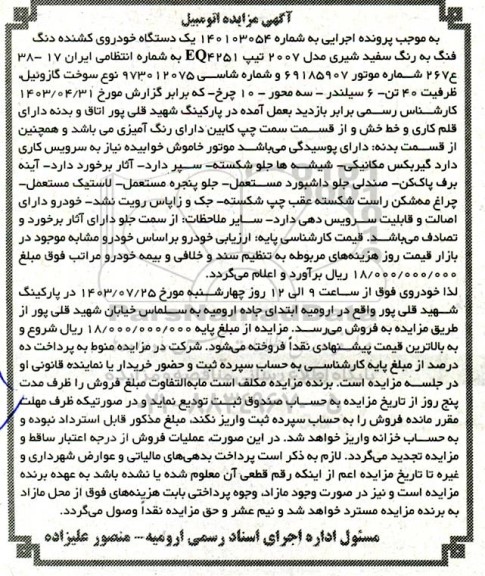 آگهی مزایده اتومبیل
به موجب پرونده اجرایی به شماره ۱۴۰۱۰۳۰۵۴ یک دستگاه خودروی کشنده دنگ
فنگ به رنگ سفید شیری مدل ۲۰۰۷ تیپ EQ۴۲۵۱ به شماره انتظامی ایران ۱۷ -۳۸
ع۲۶۷ شماره موتور ۶۹۱۸۵۹۰۷ و شماره شاسی ۹۷۳۰۱۲۰۷۵ نوع سوخت گازوئیل،
ظرفیت ۴۰ تن- ۶ سیلندر - سه محور - ۱۰ چرخ- که برابر گزارش مورخ ۱۴۰۳/۰۴/۳۱
کارشناس رسمی برابر بازدید بعمل آمده در پارکینگ شهید قلی پور اتاق و بدنه دارای
قلم کاری و خط خش و از قسمت سمت چپ کابین دارای رنگ آمیزی می باشد و همچنین
از قسمت بدنه: دارای پوسیدگی می‌باشد موتور خاموش خوابیده نیاز به سرویس کاری
دارد گیربکس مکانیکی- شیشه ها جلو شکسته- سپر دارد- آثار برخورد دارد- آینه
برف پاک‌کن- صندلی جلو داشبورد مستعمل- جلو پنجره مستعمل- لاستیک مستعمل-
چراغ مه‌شکن راست شکسته عقب چپ شکسته- جک و زاپاس رویت نشد- خودرو دارای
اصالت و قابلیت سرویس دهی دارد- سایر ملاحظات: از سمت جلو دارای آثار برخورد و
تصادف می‌باشد. قیمت کارشناسی پایه: ارزیابی خودرو براساس خودرو مشابه موجود در
بازار قیمت روز هزینه‌های مربوطه به تنظیم سند و خلافی و بیمه خودرو مراتب فوق مبلغ
۱۸/۰۰۰/۰۰۰/۰۰۰ ریال برآورد و اعلام می‌گردد.
لذا خودروی فوق از ساعت ۹ الی ۱۲ روز چهارشنبه مورخ ۱۴۰۳/۰۷/۲۵ در پارکینگ
شهید قلی پور واقع در ارومیه ابتدای جاده ارومیه به سلماس خیابان شهید قلی پور از
طریق مزایده به فروش می‌رسد. مزایده از مبلغ پایه ۱۸/۰۰۰/۰۰۰/۰۰۰ ریال شروع و
به بالاترین قیمت پیشنهادی نقداً فروخته می‌شود. شرکت در مزایده منوط به پرداخت ده
درصد از مبلغ پایه کارشناسی به حساب سپرده ثبت و حضور خریدار یا نماینده قانونی او
در جلسه مزایده است. برنده مزایده مکلف است مابه‌التفاوت مبلغ فروش را ظرف مدت
پنج روز از تاریخ مزایده به حساب صندوق ثبت تودیع نماید و در صورتیکه ظرف مهلت
مقرر مانده فروش را به حساب سپرده ثبت واریز نکند، مبلغ مذکور قابل استرداد نبوده و
به حساب خزانه واریز خواهد شد. در این صورت، عملیات فروش از درجه اعتبار ساقط و
مزایده تجدید می‌گردد. لازم به ذکر است پرداخت بدهی‌های مالیاتی و عوارض شهرداری و
غیره تا تاریخ مزایده اعم از اینکه رقم قطعی آن معلوم شده یا نشده باشد به عهده برنده
مزایده است و نیز در صورت وجود مازاد، وجوه پرداختی بابت هزینه‌های فوق از محل مازاد
به برنده مزایده مسترد خواهد شد و نیم عشر و حق مزایده نقداً وصول می‌گردد.
مسئول اداره اجرای اسناد رسمی ارومیه-- منصور علیزاده